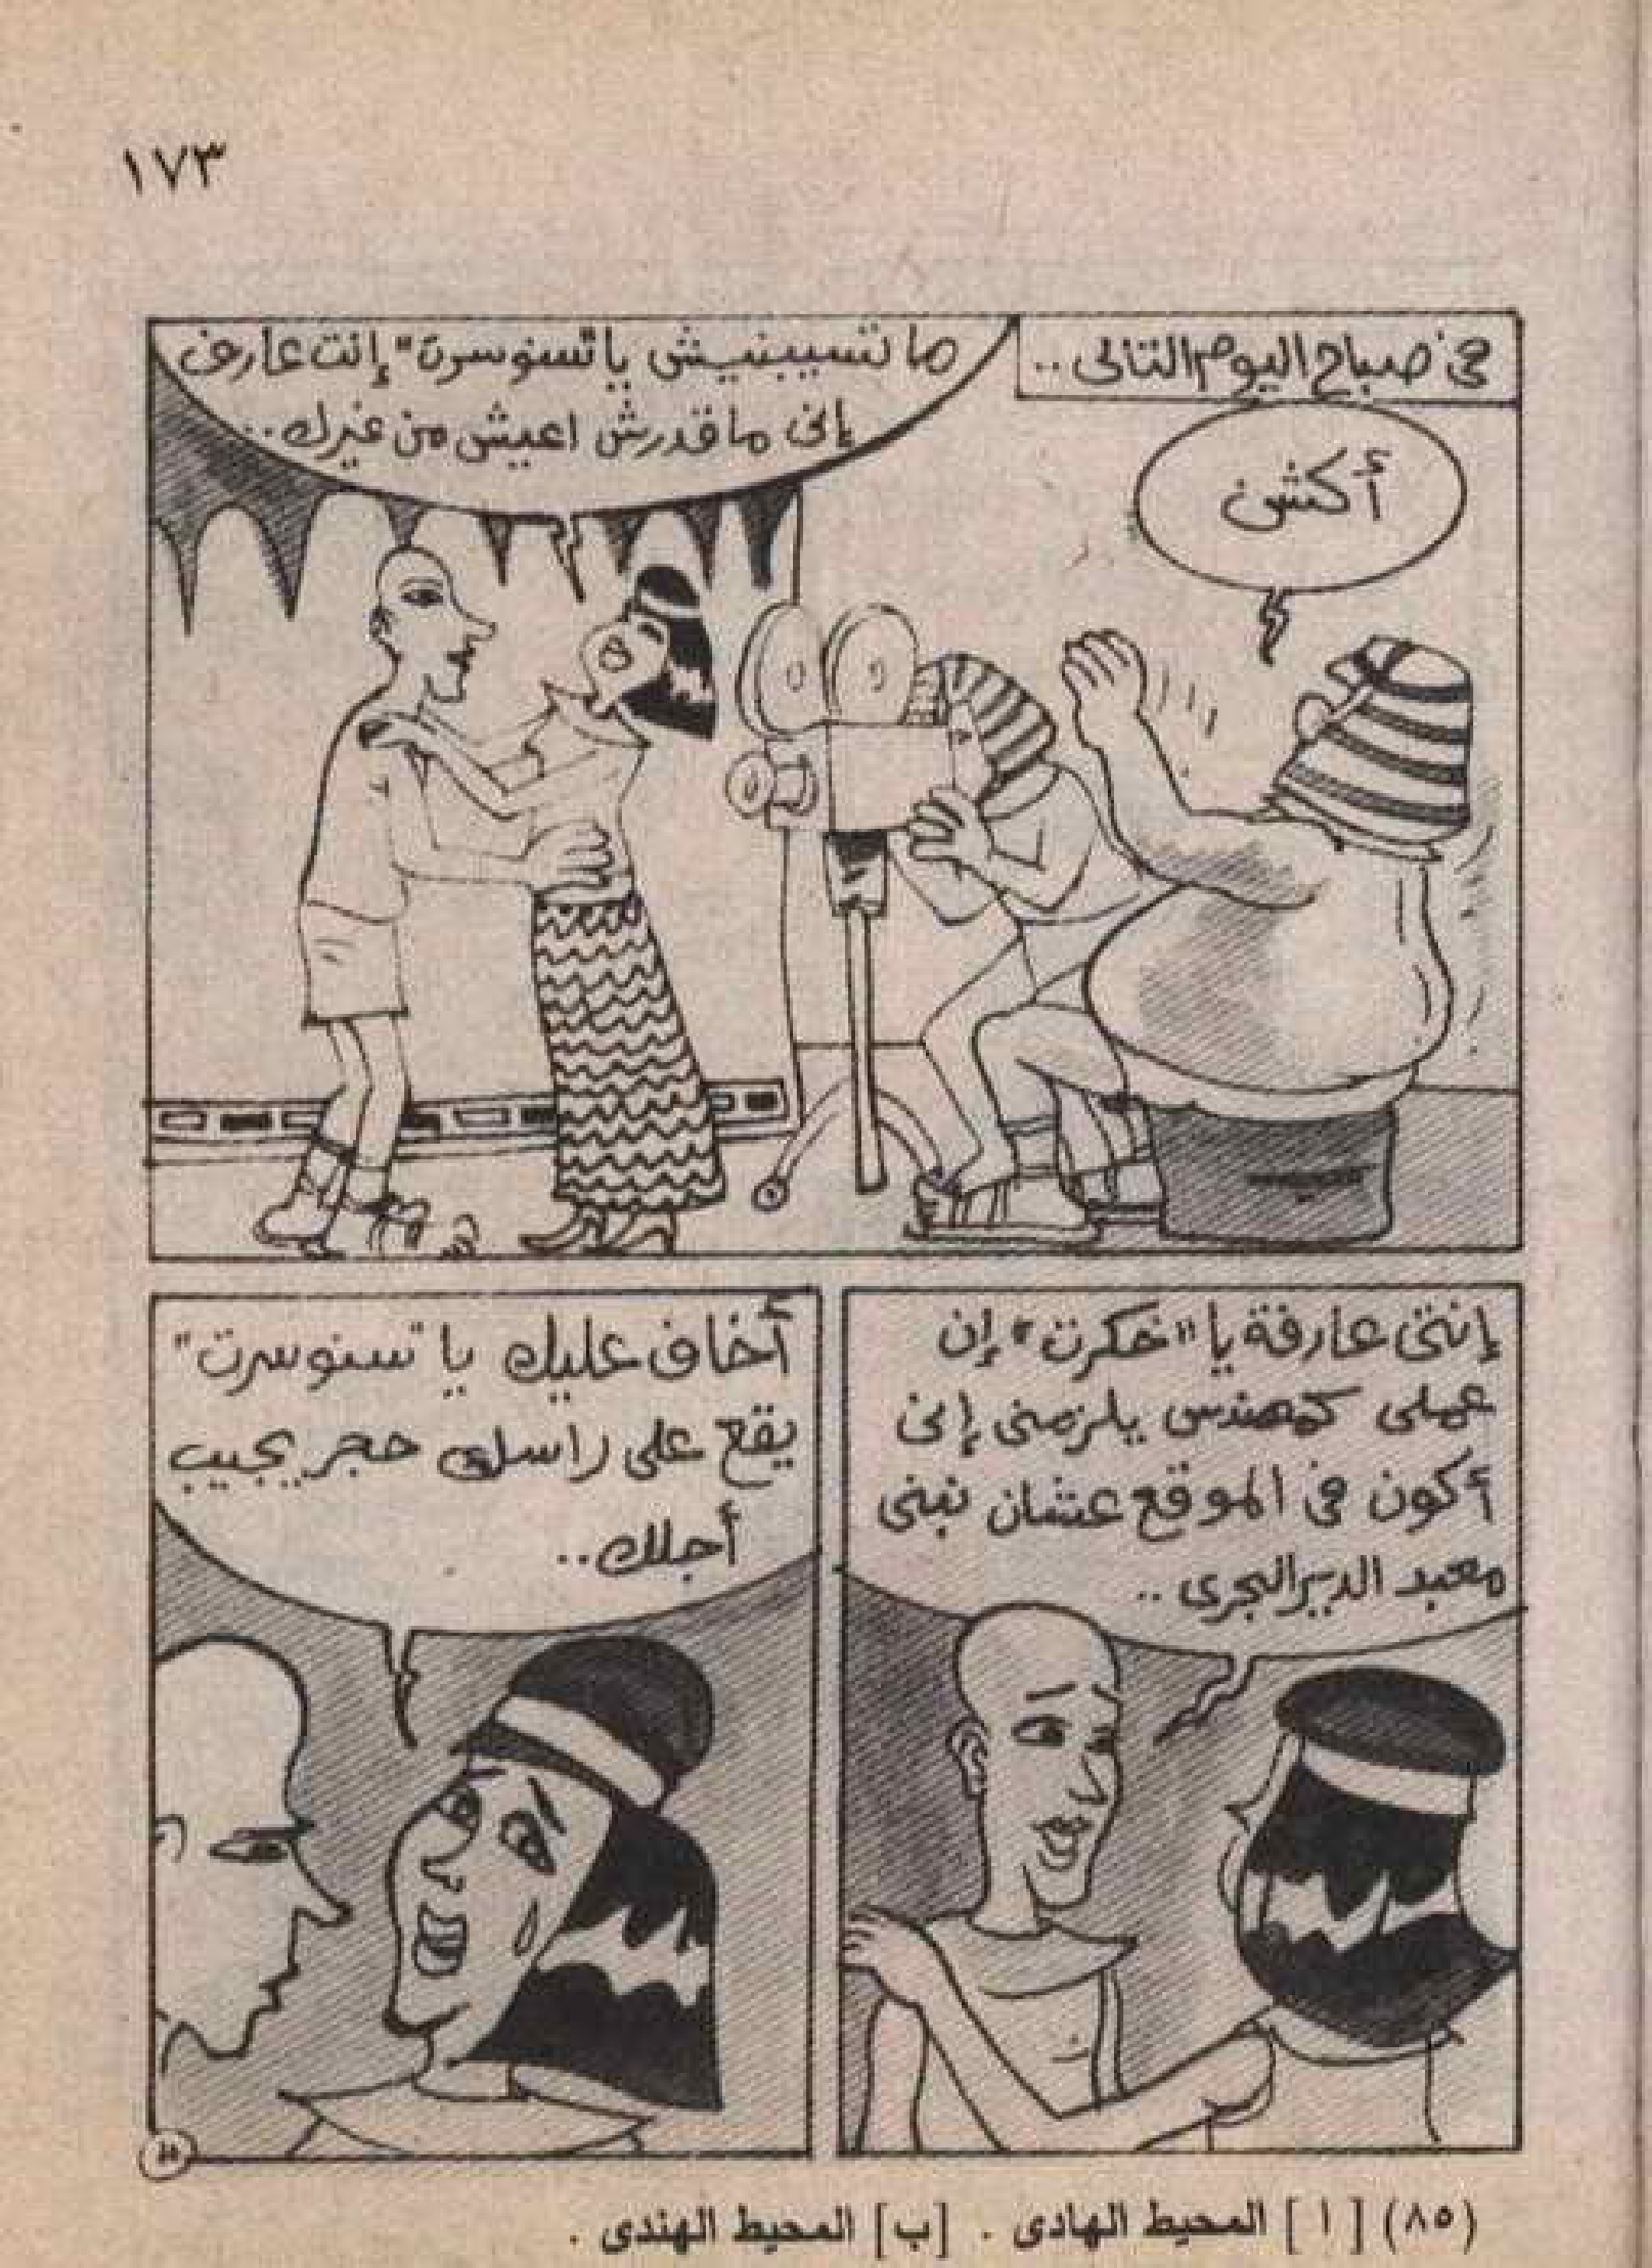 ١٧٣
فى صباح اليوم التالى..
أكشن
ما تسيبنيش يا "سنوسرت" إنت عارف
إنى ماقدرش اعيش من غيرك..
إنتى عارفة يا "خكرت" إن
عملى كمهندس يلزمنى إنى
أكون فى الموقع عشان نبنى
معبد الدير البحرى..
أخاف عليك يا "سنوسرت"
يقع على راسك حجر يجيب
أجلك..
(٨٥) [ ا ] المحيط الهادى . [ب] المحيط الهندى .